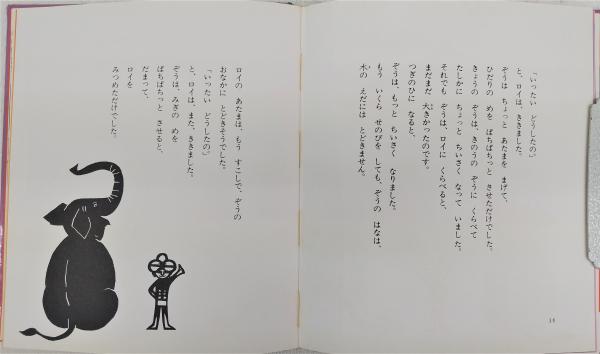 「いったい どうしたの」
と、ロイは、ききました。
ぞうは ちょっと あたまを まげて、
ひだりの めを ぱちぱちっと させただけでした。
きょうの ぞうは、きのうの ぞうに くらべて
たしかに ちょっと ちいさく なって いました。
それでも ぞうは、ロイに くらべると、
まだまだ 大きかったのです。
つぎのひに なると、
ぞうは、もっと ちいさく なりました。
もう いくら せのびを しても、ぞうの はなは、
木の えだには とどきません。
14
ロイの あたまは、もう すこしで、ぞうの
おなかに とどきそうでした。
「いったい どうしたの」
と、ロイは、また、ききました。
ぞうは、みぎの めを
ぱちぱちっと させると、
だまって、
ロイを
みつめただけでした。